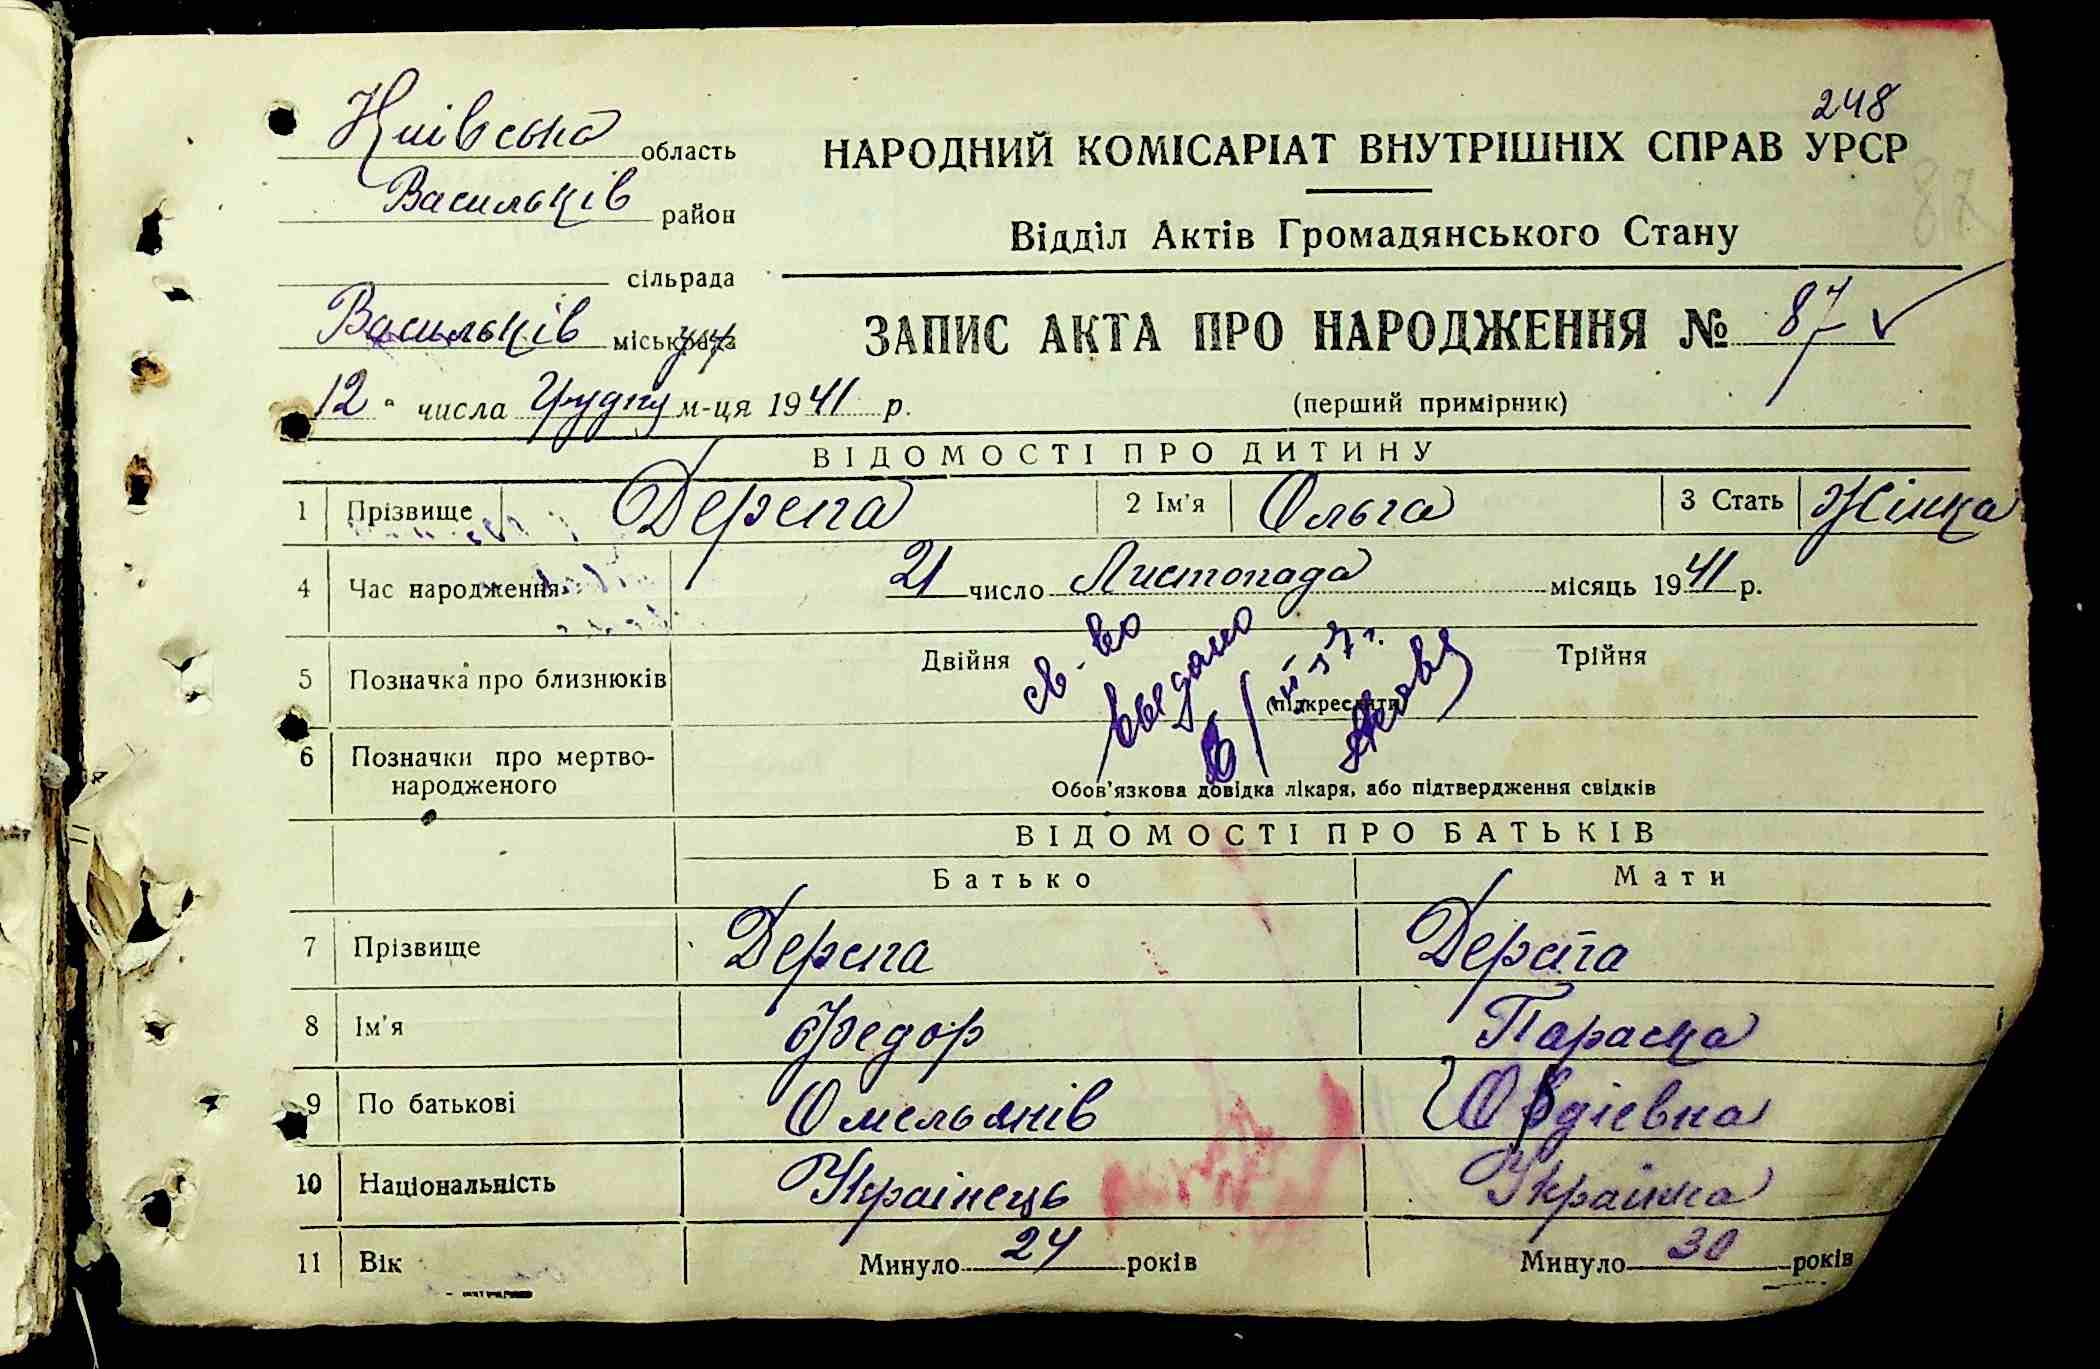 248
Київська область
НАРОДНИЙ КОМІСАРІАТ ВНУТРІШНІХ СПРАВ УРСР
Васильків район
87
Відділ Актів Громадянського Стану
сільрада
Васильків міськрада
ЗАПИС АКТА ПРО НАРОДЖЕННЯ № 87
12 " числа Грудня м-ця 1941 р.
(перший примірник)
ВІДОМОСТІ ПРО ДИТИНУ
1 Прізвище Дерепа 2 Ім'я Ольга 3 Стать Жінка
4 Час народження 21 число Листопада місяць 1941 р.
5 Позначка про близнюків Двійня Трійня
(підкреслити)
св-во
выдано
6 Позначки про мертво-
народженого
Обов'язкова довідка лікаря, або підтвердження свідків
ВІДОМОСТІ ПРО БАТЬКІВ
Батько Мати
7 Прізвище Дерепа Дерепа
8 Ім'я Федор Параска
9 По батькові Омельянів Овдіевна
10 Національність Українець Українка
11 Вік Минуло 24 років Минуло 30 років